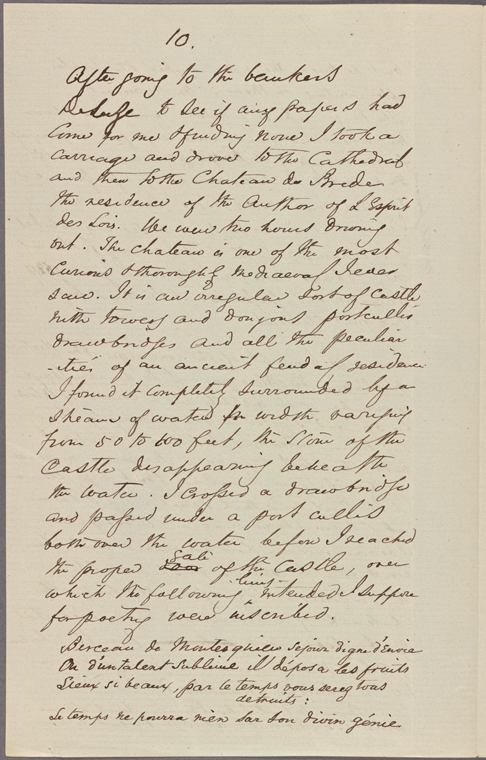 10.
After going to the bankers
to see if any papers had
come for me & finding none I took a
carriage and drove to the Cathedral
and then to the Chateau de Brede
the residence of the Author of L'Esprit
des Lois. We were two hours driving
out. The chateau is one of the most
curious & thoroughly mediaeval I ever
saw. It is an irregular sort of castle
with towers and donjons portcullis
drawbridges and all the peculiar
-ties of an ancient feudal residence
I found it completely surrounded by a
stream of water in width varying
from 50 to 600 feet, the stone of the
Castle disappearing beneath
the water. I crossed a drawbridge
and passed under a portcullis
both over the water before I reached
the proper gate of the castle, over
which the following lines intended I suppose
for poetry were inscribed.
Berceau de Montesquieu sejour digne d'envie
Ou d'un talent sublime il déposa les fruits
Lieux si beaux, par le temps vous serez tous
detruits:
Le temps ne pourra rien sur son divin génie